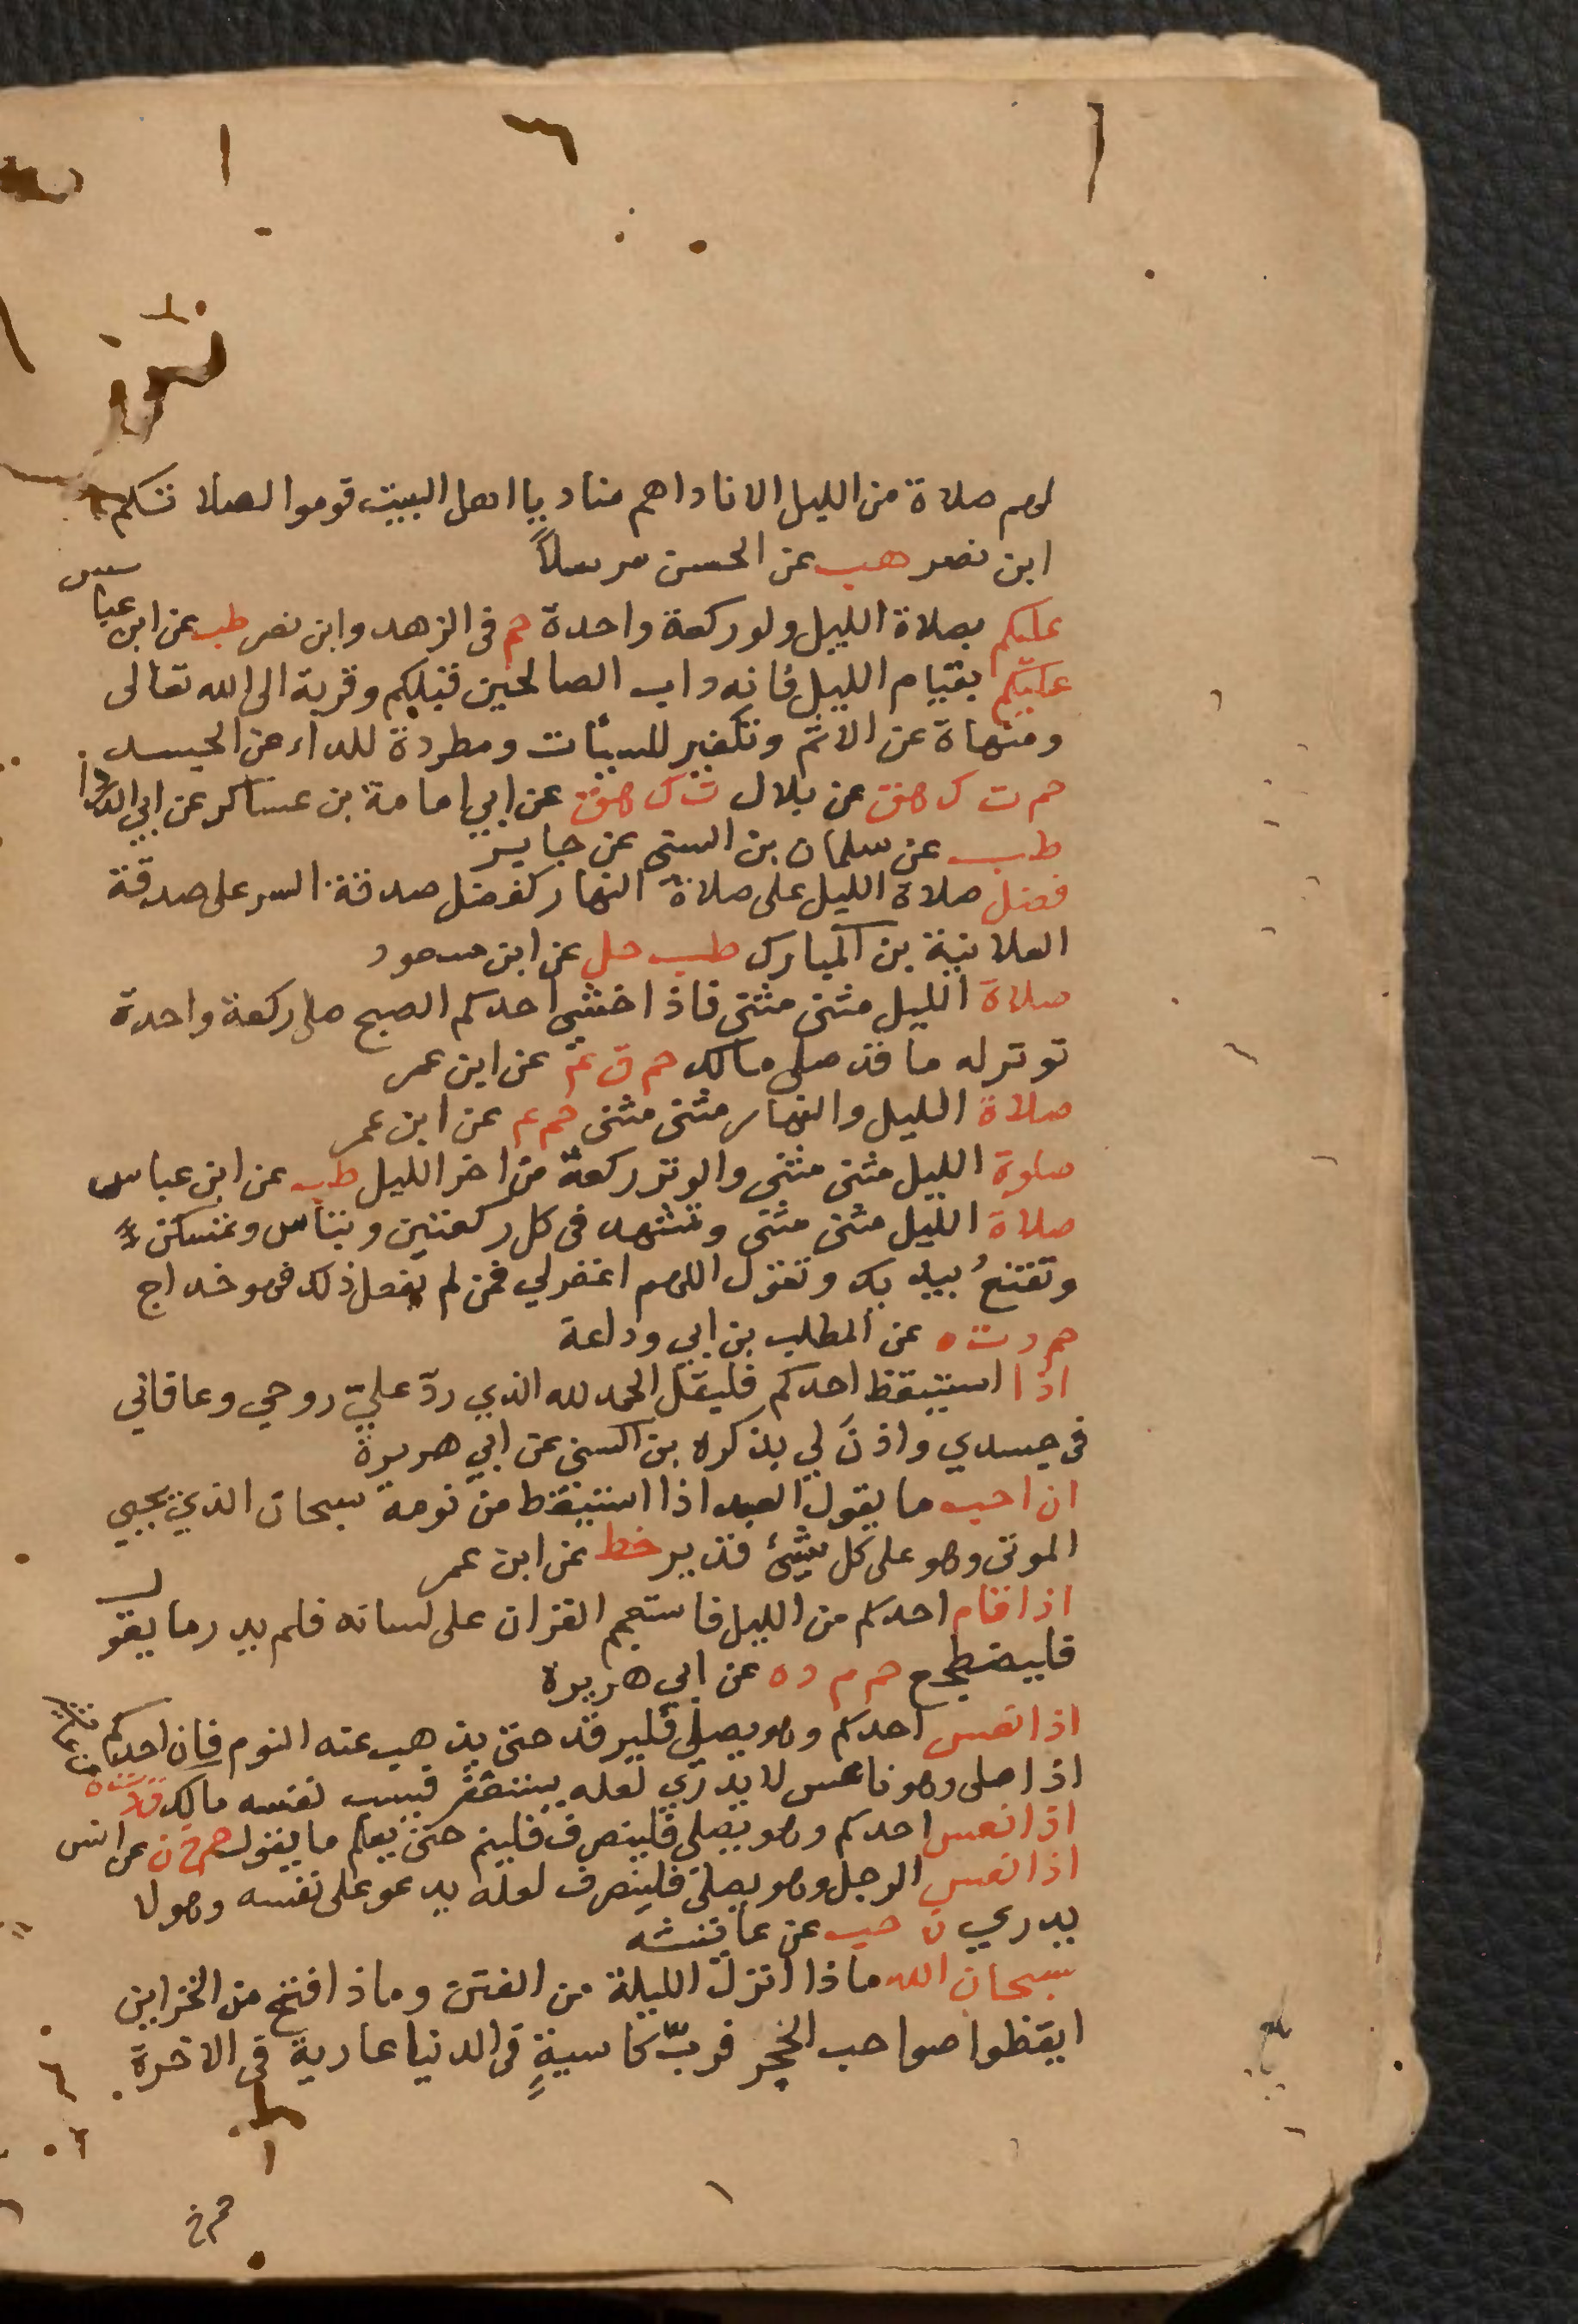 لهم صلاة من الليل الا ناداهم مناد يا اهل البيت قوموا لصلاتكم
ابن نصر هب عن الحسن مرسلاً
عليكم بصلاة الليل ولو ركعة واحدة حم فى الزهد وابن نصر طب عن ابن عباس
عليكم بقيام الليل فانه داب الصالحين قبلكم وقربة الى الله تعالى
ومنهاة عن الاثم وتكفير للسيئات ومطردة للداء عن الجسد
حم ت ك هق عن بلال ت ك هق عن ابي امامة بن عساكر عن ابي الدردا
طب عن سلمان بن السني عن جابر
فضل صلاة الليل على صلاة النهار كفضل صدقة السر على صدقة
العلانية بن المبارك طب حل عن ابن مسعود
صلاة الليل مثنى مثنى فاذا خشي احدكم الصبح صلى ركعة واحدة
توتر له ما قد صلى مالك حم ق عم عن ابن عمر
صلاة الليل والنهار مثنى مثنى حم عم عن ابن عمر
صلوة الليل مثنى مثنى والوتر ركعة من اخر الليل طب عن ابن عباس
صلاة الليل مثنى مثنى وتشهد فى كل ركعتين وتبأس وتمسكن
وتقنع بيديك وتقول اللهم اغفر لي فمن لم يفعل ذلك فهو خداج
حم د ت ه عن المطلب بن ابي وداعة
اذا استيقظ احدكم فليقل الحمد لله الذي ردّ عليّ روحي وعافاني
فى جسدي واذنَ لي بذكره بن السني عن ابي هريرة
ان احب ما يقول العبد اذا استيقظ من نومه سبحان الذي يحيي
الموتى وهو على كل شيئ قدير خط عن ابن عمر
اذا قام احدكم من الليل فاستعجم القران على لسانه فلم يدر ما يقول
فليضطجع حم م د ه عن ابي هريرة
اذا نعس احدكم وهو يصلي فليرقد حتى يذهب عنه النوم فان احدكم
اذا صلى وهو ناعس لا يدري لعله يستغفر فيسب نفسه مالك ق د ت ه
اذا نعس احدكم وهو يصلى فلينصرف فلينم حتى يعلم ما يقول حم خ ن عن انس
اذا نعس الرجل وهو يصلى فلينصرف لعله يدعو على نفسه وهو لا
يدري ن حب عن عايشه
سبحان الله ماذا انزل الليلة من الفتن وماذا فتح من الخزاين
ايقظوا صواحب الحجر فربّ كاسيةٍ فى الدنيا عارية فى الاخرة
حم خ